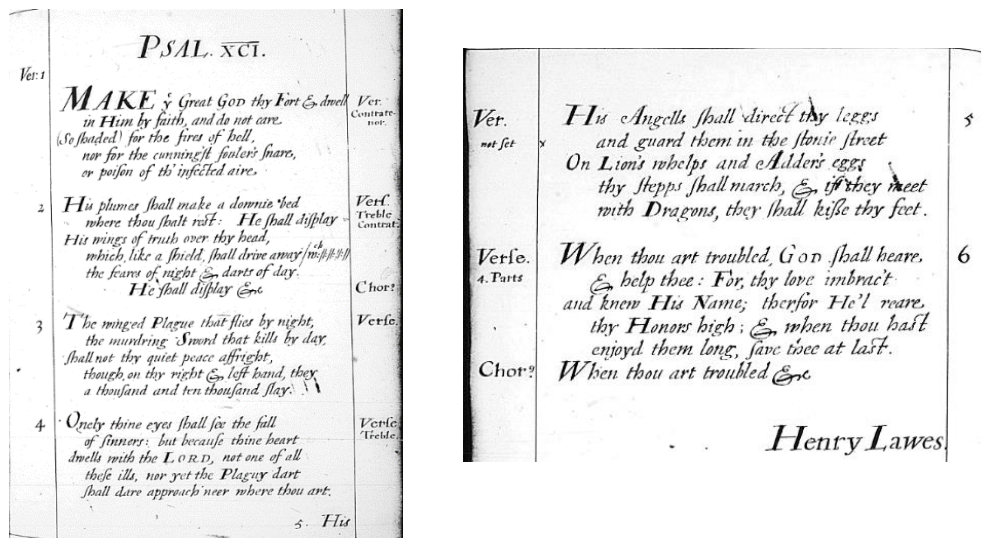 PSAL. XCI.
Ver: 1
MAKE yͤ Great GOD thy Fort & dwell
Ver.
in Him by faith, and do not care
Contrate-
nor.
(So shaded) for the fires of hell,
nor for the cunning'st fouler's snare,
or poison of th' infected aire.
2
His plumes shall make a downie bed
Vers.
where thou shalt rest: He shall display
Treble
Contrat:
His wings of truth over thy head,
which, like a shield, shall drive away
the feares of night & darts of day.
He shall display &c
Chor⁹
3
The winged Plague that flies by night,
Verse.
the murdring Sword that kills by day,
shall not thy quiet peace affright,
though on thy right & left hand, they
a thousand and ten thousand slay.
4
Onely thine eyes shall see the fall
Verse
of sinners: but because thine heart
Treble.
dwells with the LORD, not one of all
these ills, nor yet the Plaguy dart
shall dare approach neer where thou art.
5. His
Ver.
His Angells shall direct thy leggs
5
not set
x
and guard them in the stonie street
On Lion's whelps and Adders eggs
thy stepps shall march, & if they meet
with Dragons, they shall kisse thy feet.
Verse.
When thou art troubled, GOD shall heare,
6
4. Parts
& help thee: For, thy love imbrac't
and knew His Name; therfor He'l reare
thy Honors high; & when thou hast
enjoyd them long, save thee at last.
Chor⁹
When thou art troubled &c
Henry Lawes.